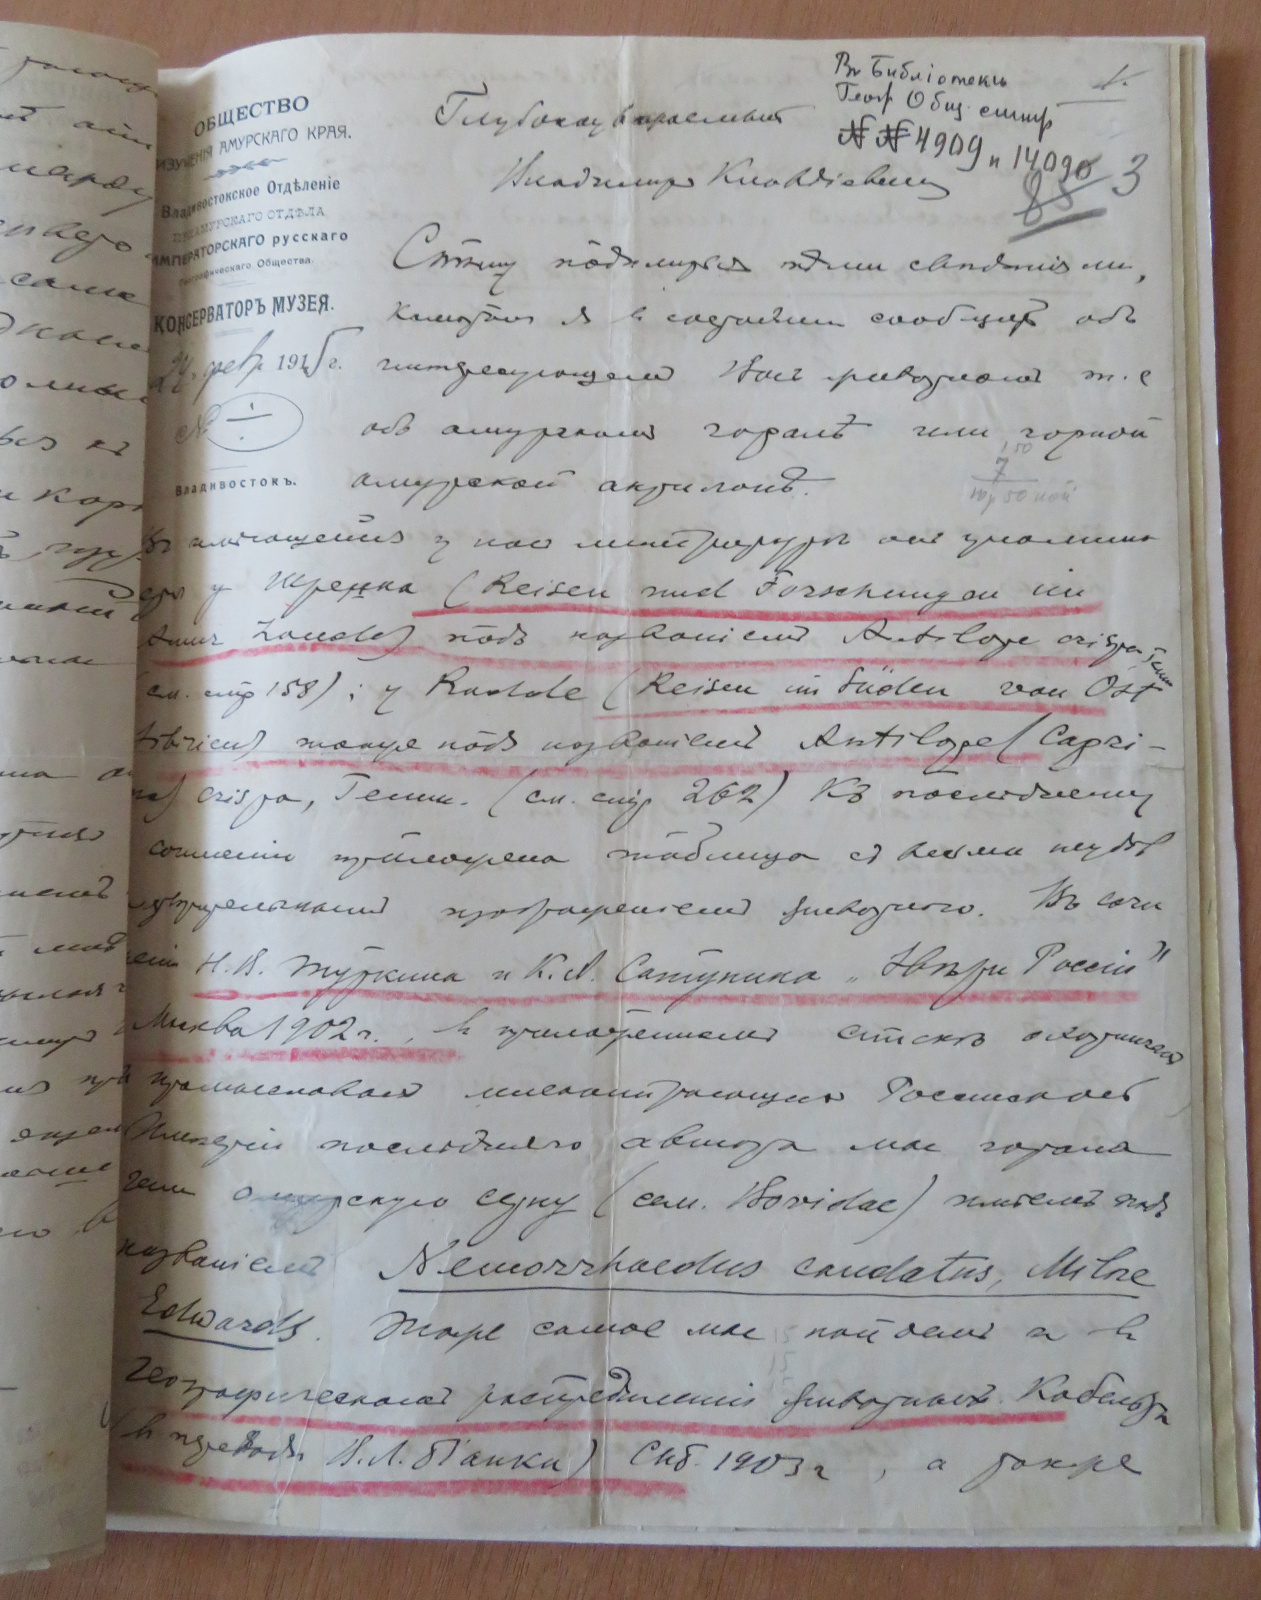 ОБЩЕСТВО
ИЗУЧЕНІЯ АМУРСКАГО КРАЯ.
Владивостокское Отдѣленіе
ПРИАМУРСКАГО ОТДѢЛА
ИМПЕРАТОРСКАГО русскаго
Географическаго Общества.
КОНСЕРВАТОРЪ МУЗЕЯ.
24 февр 1915 г.
№
Владивостокъ.
Въ Библіотекѣ
Геогр Общ.
№ № 4909 и 14090
85 3
Глубокоуважаемый
Владиміръ Клавдіевичъ
Спѣшу подѣлиться тѣми свѣдѣніями,
какія я в состояніи сообщить объ
интересующемъ Васъ животномъ т.е
объ амурскомъ горалѣ или горной
амурской антилопѣ.
Въ имѣющейся у нас литературѣ он упомина
ется у Шренка (Reisen und Forschungen im
Amur Lande) подъ названіемъ Antilope crispa Temm
(см. стр 158); у Radde (Reisen im Süden von Ost
Sibirien) также подъ названіемъ Antilope (Capri-
na) crispa, Temm. (см. стр 262) Къ послѣднему
сочиненію приложена таблица съ весьма неудов
летворительнымъ изображеніемъ животнаго. Въ сочи
неніи Н.В. Туркина и К.А. Сатунина „Звѣри Россіи"
Москва 1902 г., в приложенномъ спискѣ охотничьихъ
промысловыхъ млекопитающихъ Россійской
Имперіи послѣдняго автора мы горала
или амурскую серну (сем. Bovidae) имѣемъ подъ
названіемъ Nemorrhaedus caudatus, Milne
Edwards. Тоже самое мы найдемъ и в
географическомъ распредѣленіи животныхъ Кобельта
(в переводѣ В.Л. Біанки) Спб. 1903 г, а также